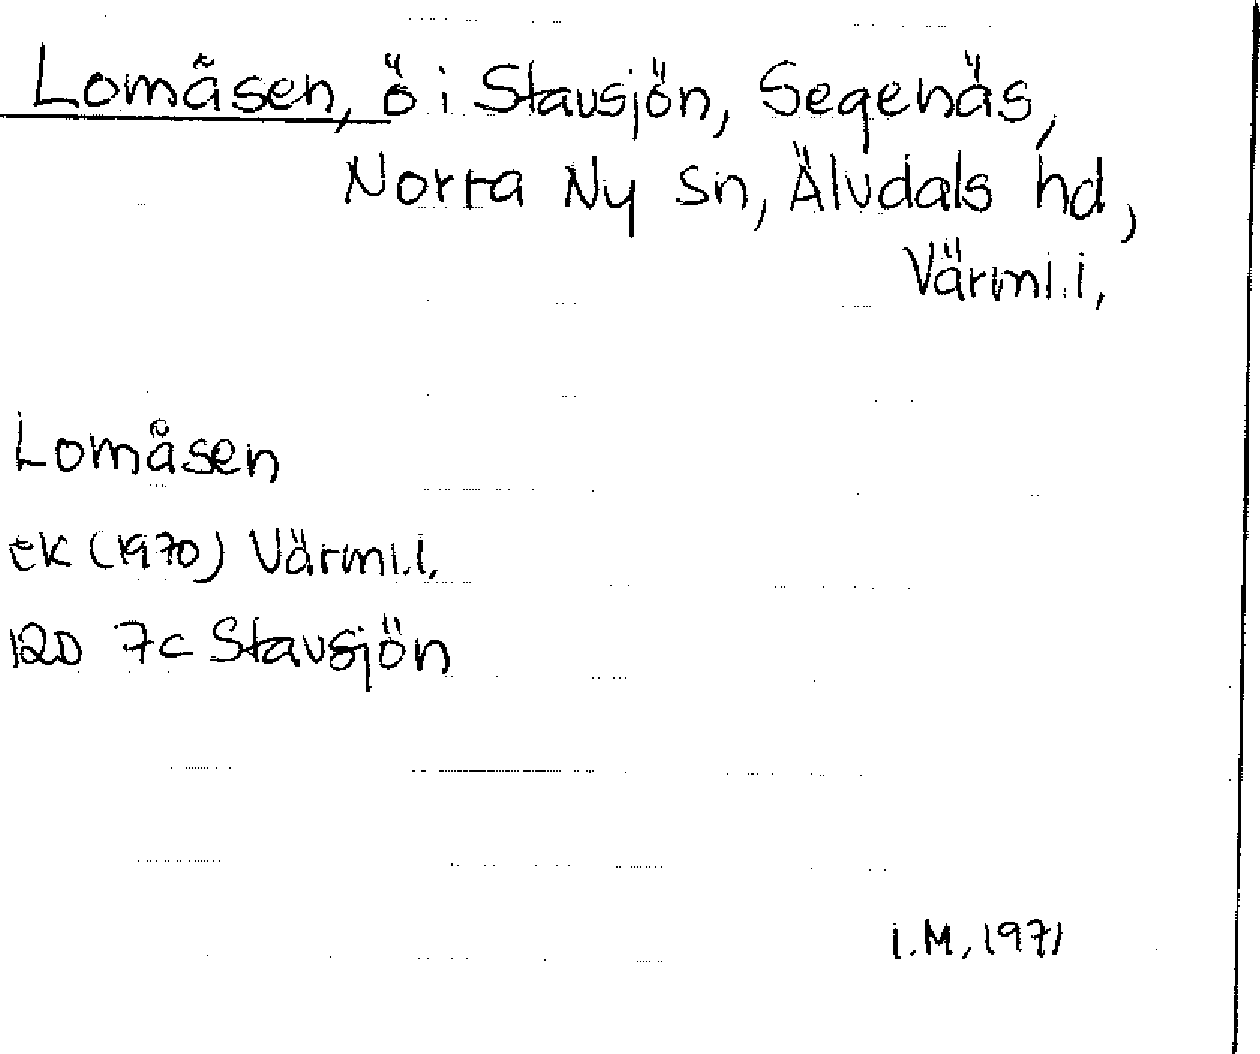 Lomåsen, ö i Stavsjön, Segenäs,
Norra Ny sn, Älvdals hd,
Värml.l,
Lomåsen
ek (1970) Värml.l,
12D 7c Stavsjön
I.M, 1971